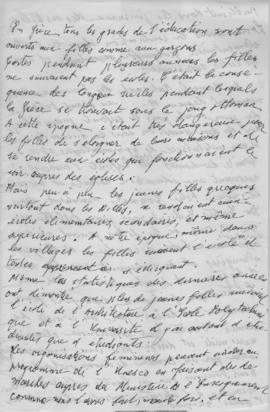 En Grèce tous les grades de l'éducation sont
ouverts aux filles comme aux garçons
pendant plusieurs années les filles
ne suivaient pas les écoles. C'était la consé-
quence des longues siècles pendant lesquels
la Grèce se trouvait sous le joug ottoman.
A cette époque c'était très dangereux pour
les filles de s'éloigner de leurs maisons et de
se rendre aux écoles que fonctionnaient le
soir auprès des églises.
Mais peu à peu les jeunes filles grecques
surtout dans les villes, se rendaient aux
écoles élémentaires, secondaires, et même
supérieures. A notre époque même dans
les villages les filles suivent l'école et
toutes s'éduquent.
Même les statistiques des dernières années
ont démontré que plus de jeunes filles suivent
l'école de l'Architecture à l'Ecole Polytechnique
que et à l'Université il y a autant d'étu-
diantes que d'étudiants.
Les organisations féminines peuvent aider au
programme de l'Unesco en faisant des dé-
marches auprès du Ministère de l'Enseignement
comme nous l'avons fait et en